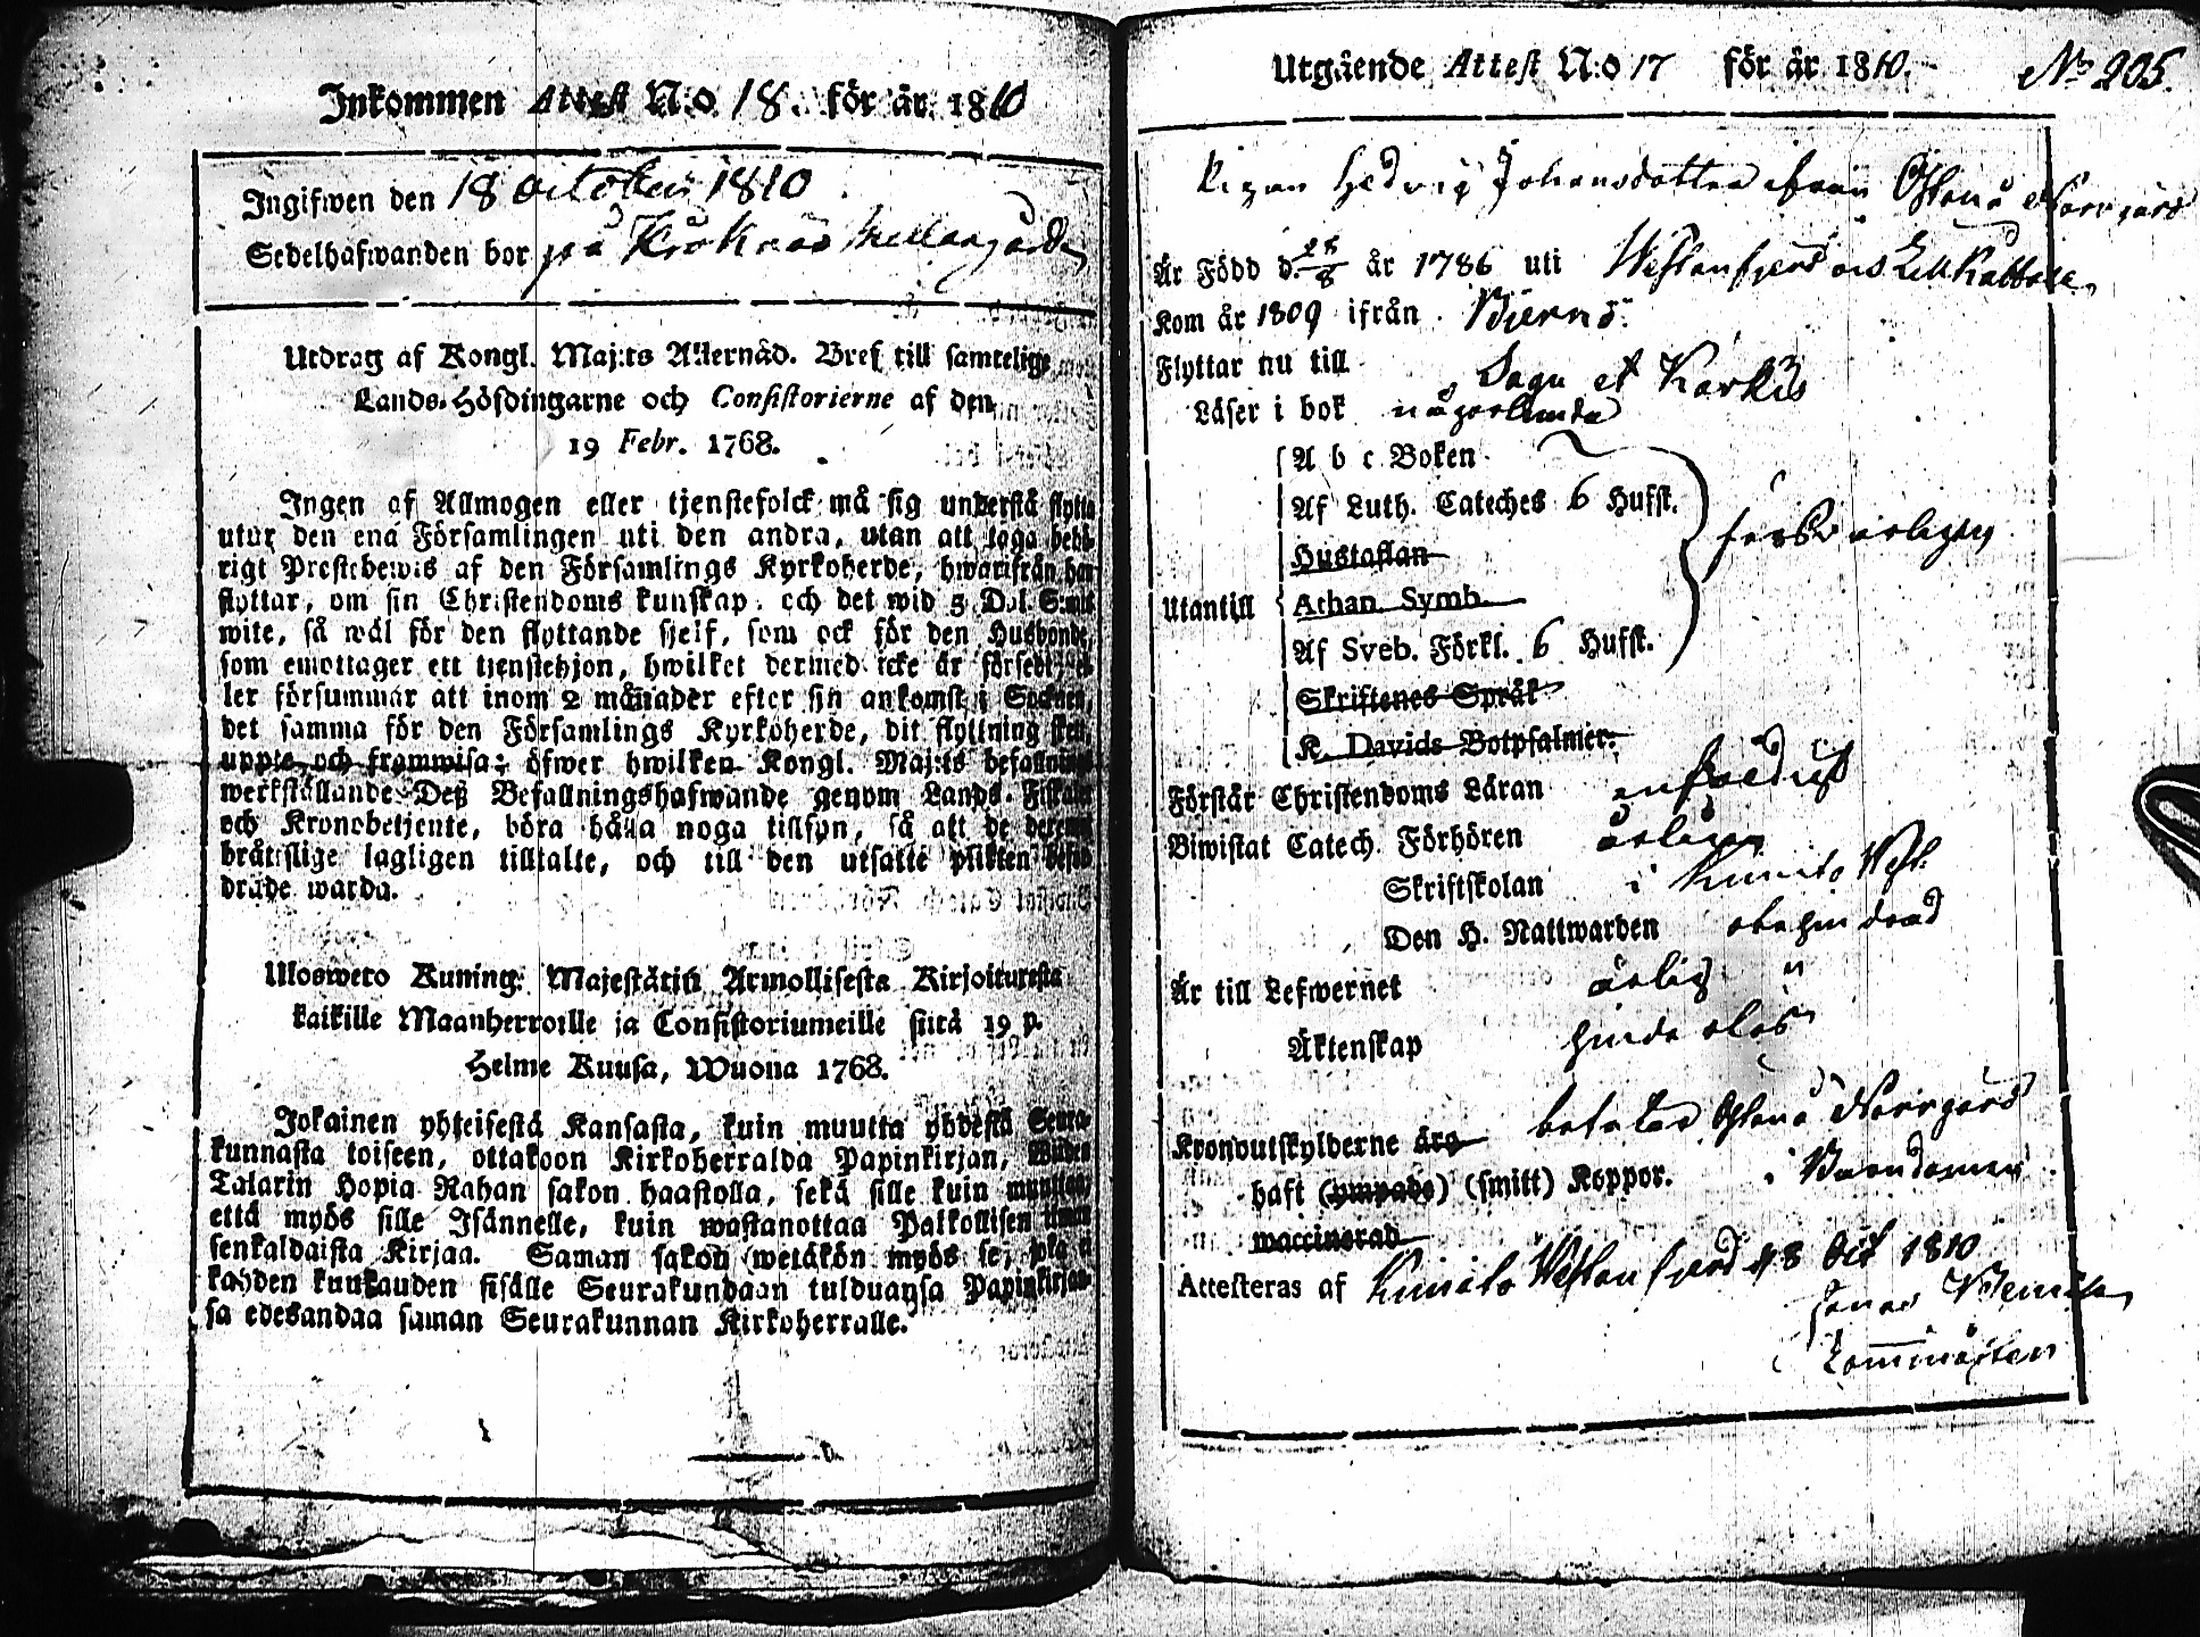 Inkommen Attest N:o 18. för år 1810
Ingifwen den 18 october 1810
Sedelhafwanden bor på Kroknäs Mellangård
Utdrag af Kongl. Maj:ts Allernåd. Bref till samtelige
Lands-Höfdingarne och Consistorierne af den
19 Febr. 1768.
Ingen af Allmogen eller tjenstefolck må sig understå flytta
utur den ena Församlingen uti den andra, utan att taga behö-
rigt Prestebewis af den Församlings Kyrkoherde, hwarifrån han
flyttar, om sin Christendoms kunskap, och det wid 5 Dal. S:mt
wite, så wäl för den flyttande sjelf, som ock för den Husbonde,
som emottager ett tjenstehjon, hwilket dermed icke är försedt, el-
ler försummar att inom 2 månader efter sin ankomst i Socknen,
det samma för den Församlings Kyrkoherde, dit flyttning sker,
uppte och framwisa; öfwer hwilken Kongl. Maj:ts befallnings
werkställande Deß Befallningshafwande genom Lands-Fiskaler
och Kronobetjente, böra hålla noga tillsyn, så att de deremot
bråttslige lagligen tilltalte, och till den utsatte plikten beford-
drade warda.
Uloswero Kuning. Majestätin Armollisesta Kirjoituresta
kaikille Maanherroille ja Consistoriumeille siitä 19 p.
Helme Kuusa, Wuona 1768.
Jokainen yhteisestä Kansasta, kuin muutta yhdestä Seura-
kunnasta toiseen, ottakoon Kirkoherralda Papinkirjan, Wiiden
Talarin Hopia Rahan sakon haastolla, sekä sille kuin muuttaa,
että myös sille Isännelle, kuin wastanottaa Palkollisen ilman
senkaldaista Kirjaa. Saman sakon wetäkön myös se, joka ei
kahden kuukauden sisälle Seurakundaan tulduansa Papinkirjan-
sa edesandaa saman Seurakunnan Kirkoherralle.
Utgående Attest N:o 17 för år 1810. No 205.
Pigan Hedvig Johansdotter ifrån Östanå Norrgård
Är Född d. 28/8 år 1786 uti Westanfjerd
Kom år 1809 ifrån Bjernå
Flyttar nu till Sagu et Karkus
Läser i bok någorlunda
A b c Boken
Af Luth. Cateches 6 Hufst.
Hustaflan
Utantill Athan. Symb. försvarligen
Af Sveb. Förkl. 6 Hufst.
Skriftenes Språk
K. Davids Botpsalmer.
Förstår Christendoms Läran enfaldigt
Biwistat Catech. Förhören årligen
Skriftskolan i Kimito West.
Den H. Nattwarden obehindrad
Är till Lefwernet ärlig
Äktenskap hinderslös
Kronoutskylderne äro betalas Östanå Norrgård
haft (ympade) (smitt) Koppor. i Barndomen
waccinerad
Attesteras af Kimito Westanfjerd d 8 Oct 1810
Jonas
Comminister